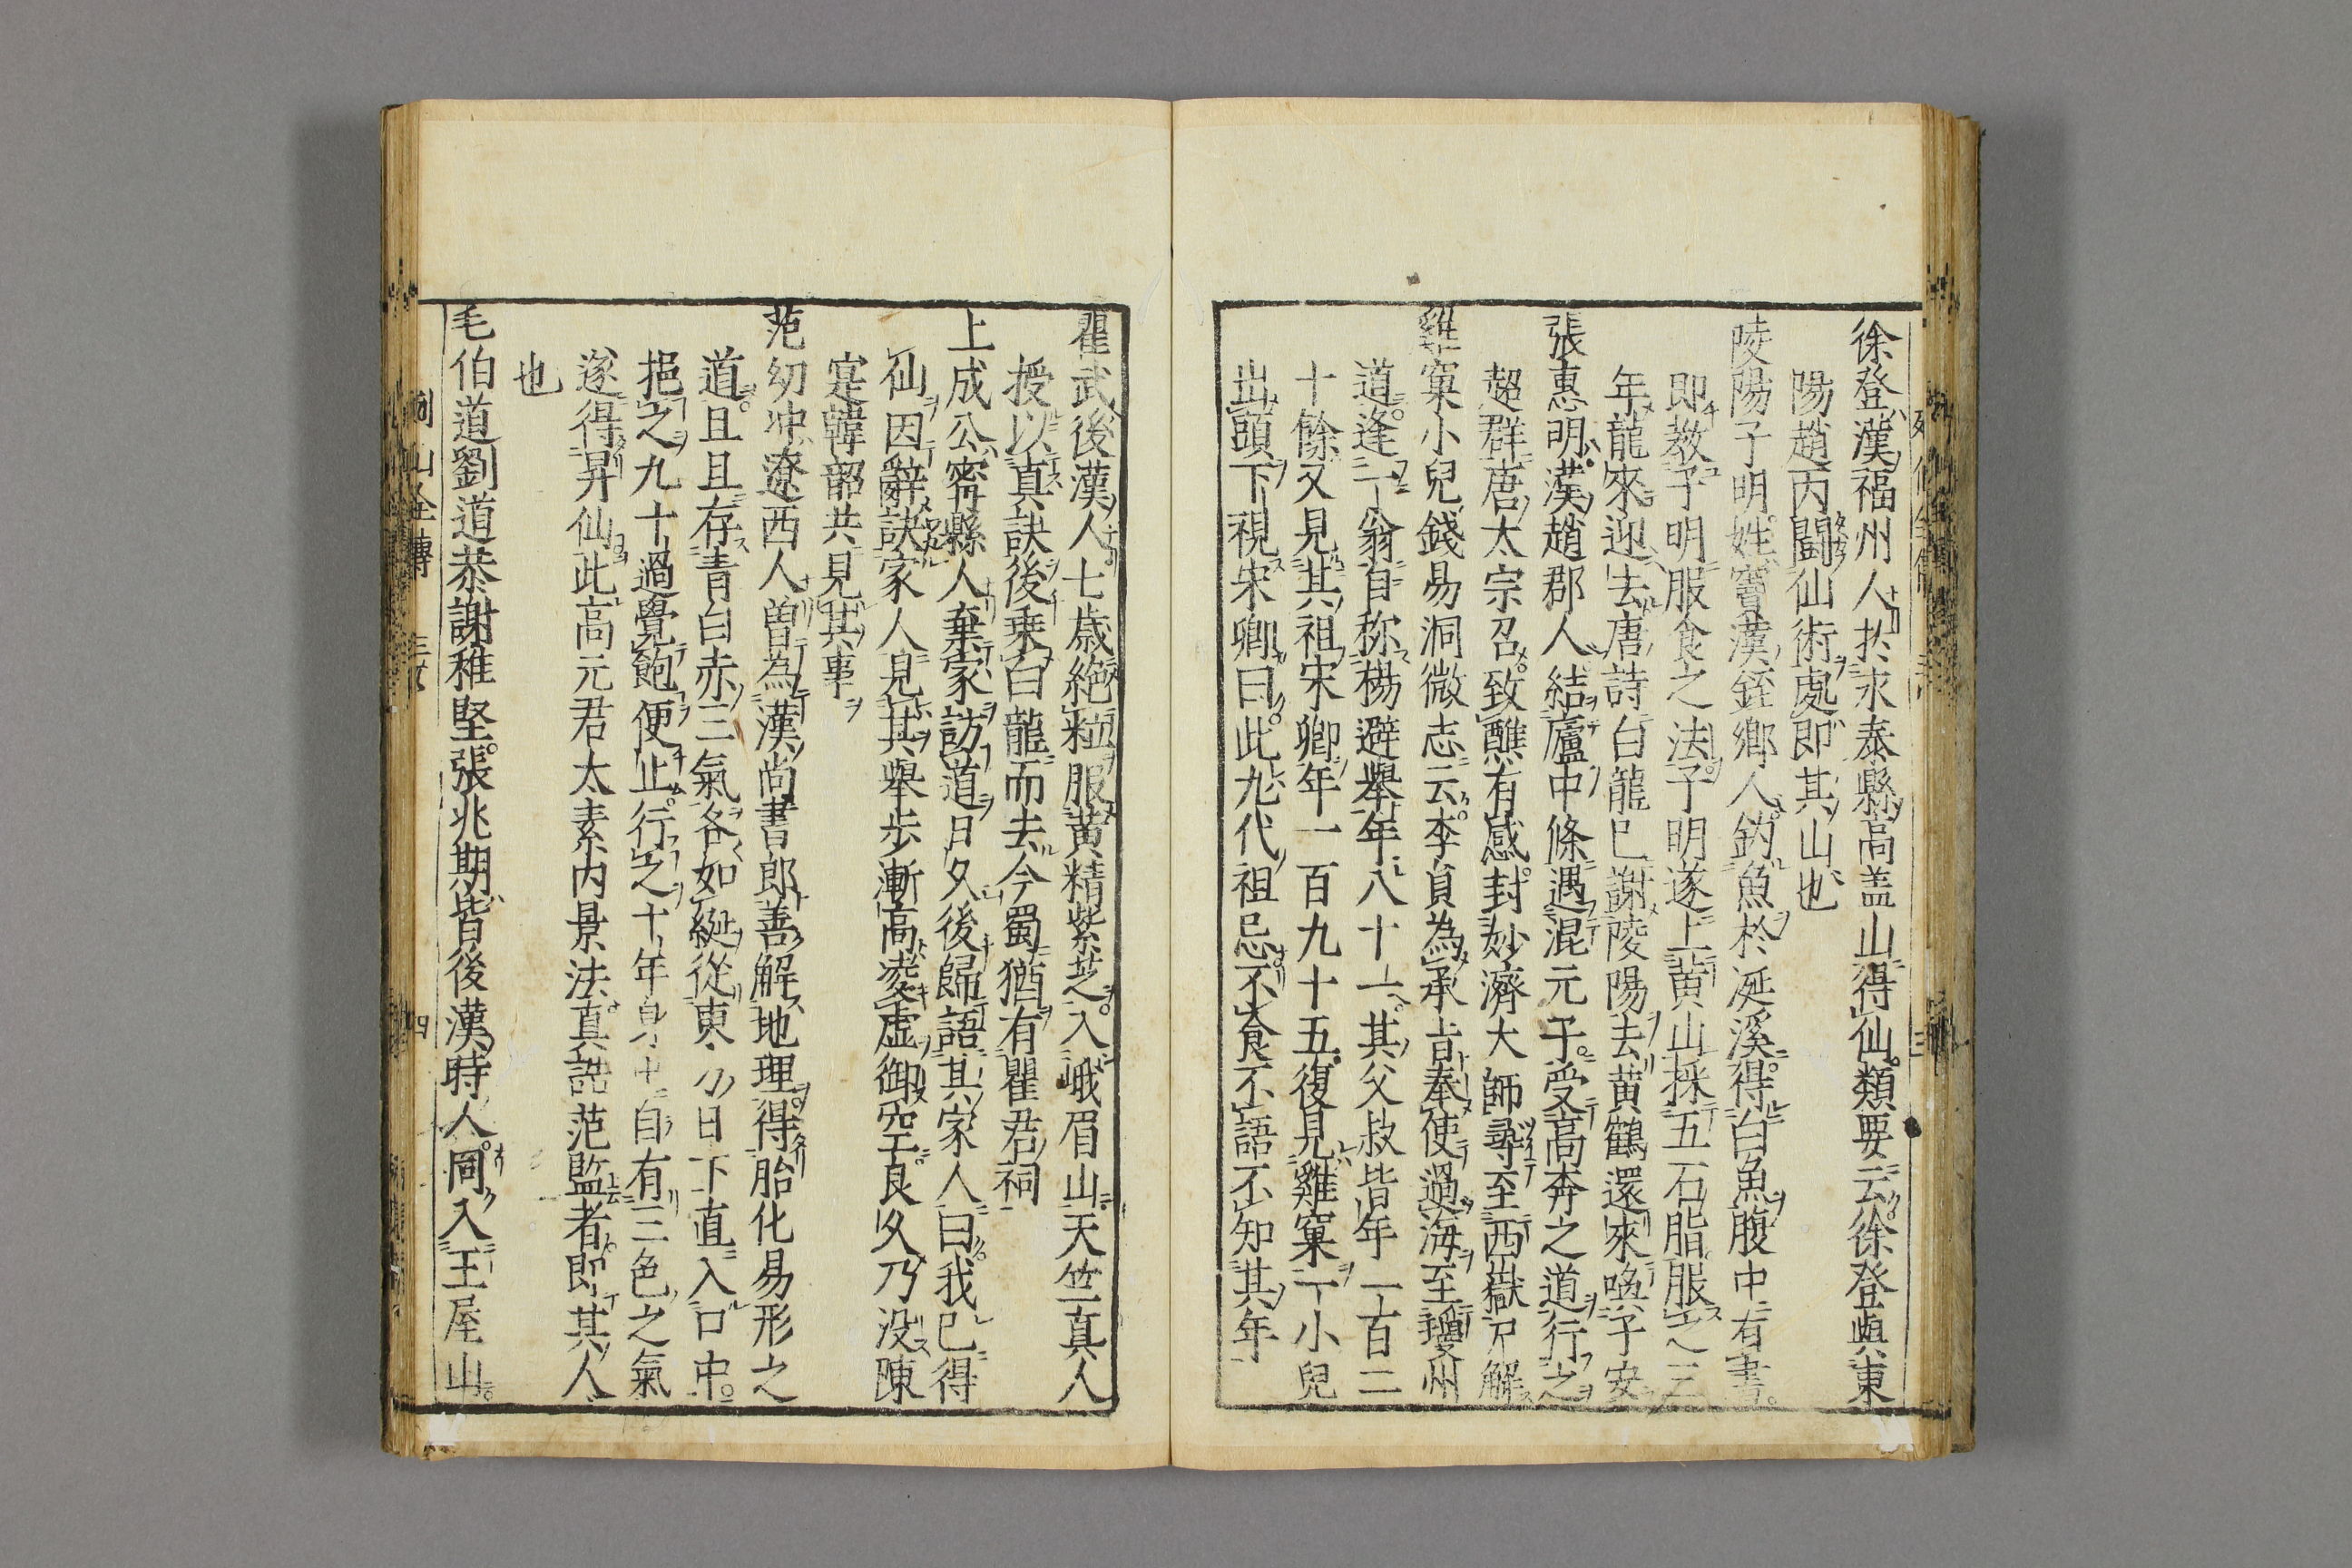 徐登漢福州人於永泰縣高盖山得仙類要云徐登與東
陽趙丙闘仙術處即其山也
陵陽子明姓竇漢銍鄉人釣魚於涎溪得白魚腹中有書
即教子明服食之法子明遂上黄山採五石脂服之三
年龍來迎去唐詩白龍已謝陵陽去黄鶴還來喚子安
張惠明漢趙郡人結廬中條遇混元子受高奔之道行之
超群唐太宗召致醮有感封妙濟大師尋至西嶽尸解
雞窠小兒錢易洞微志云李貞為承旨奉使過海至瓊州
道逢一翁自称楊避舉年八十一其父叔皆年一百二
十餘又見其祖宋卿年一百九十五復見雞窠一小兒
出頭下視宋卿曰此九代祖忌不食不語不知其年
瞿武後漢人七歳絶粒服黄精紫芝入峨眉山天竺真人
授以真訣後乗白龍而去今蜀猶有瞿君祠
上成公宻縣人棄家訪道日久後歸語其家人曰我已得
仙因辭訣家人見其舉歩漸高凌虚御空良久乃没陳
寔韓韶共見其事
范幼冲遼西人曽為漢尚書郎善解地理得胎化易形之
道且且存青白赤三氣各如綖從東方日下直入口中
挹之九十過覺飽便止行之十年身中自有三色之氣
遂得昇仙此高元君太素内景法真誥范監者即其人
也
毛伯道劉道恭謝稚堅張兆期皆後漢時人同入王屋山